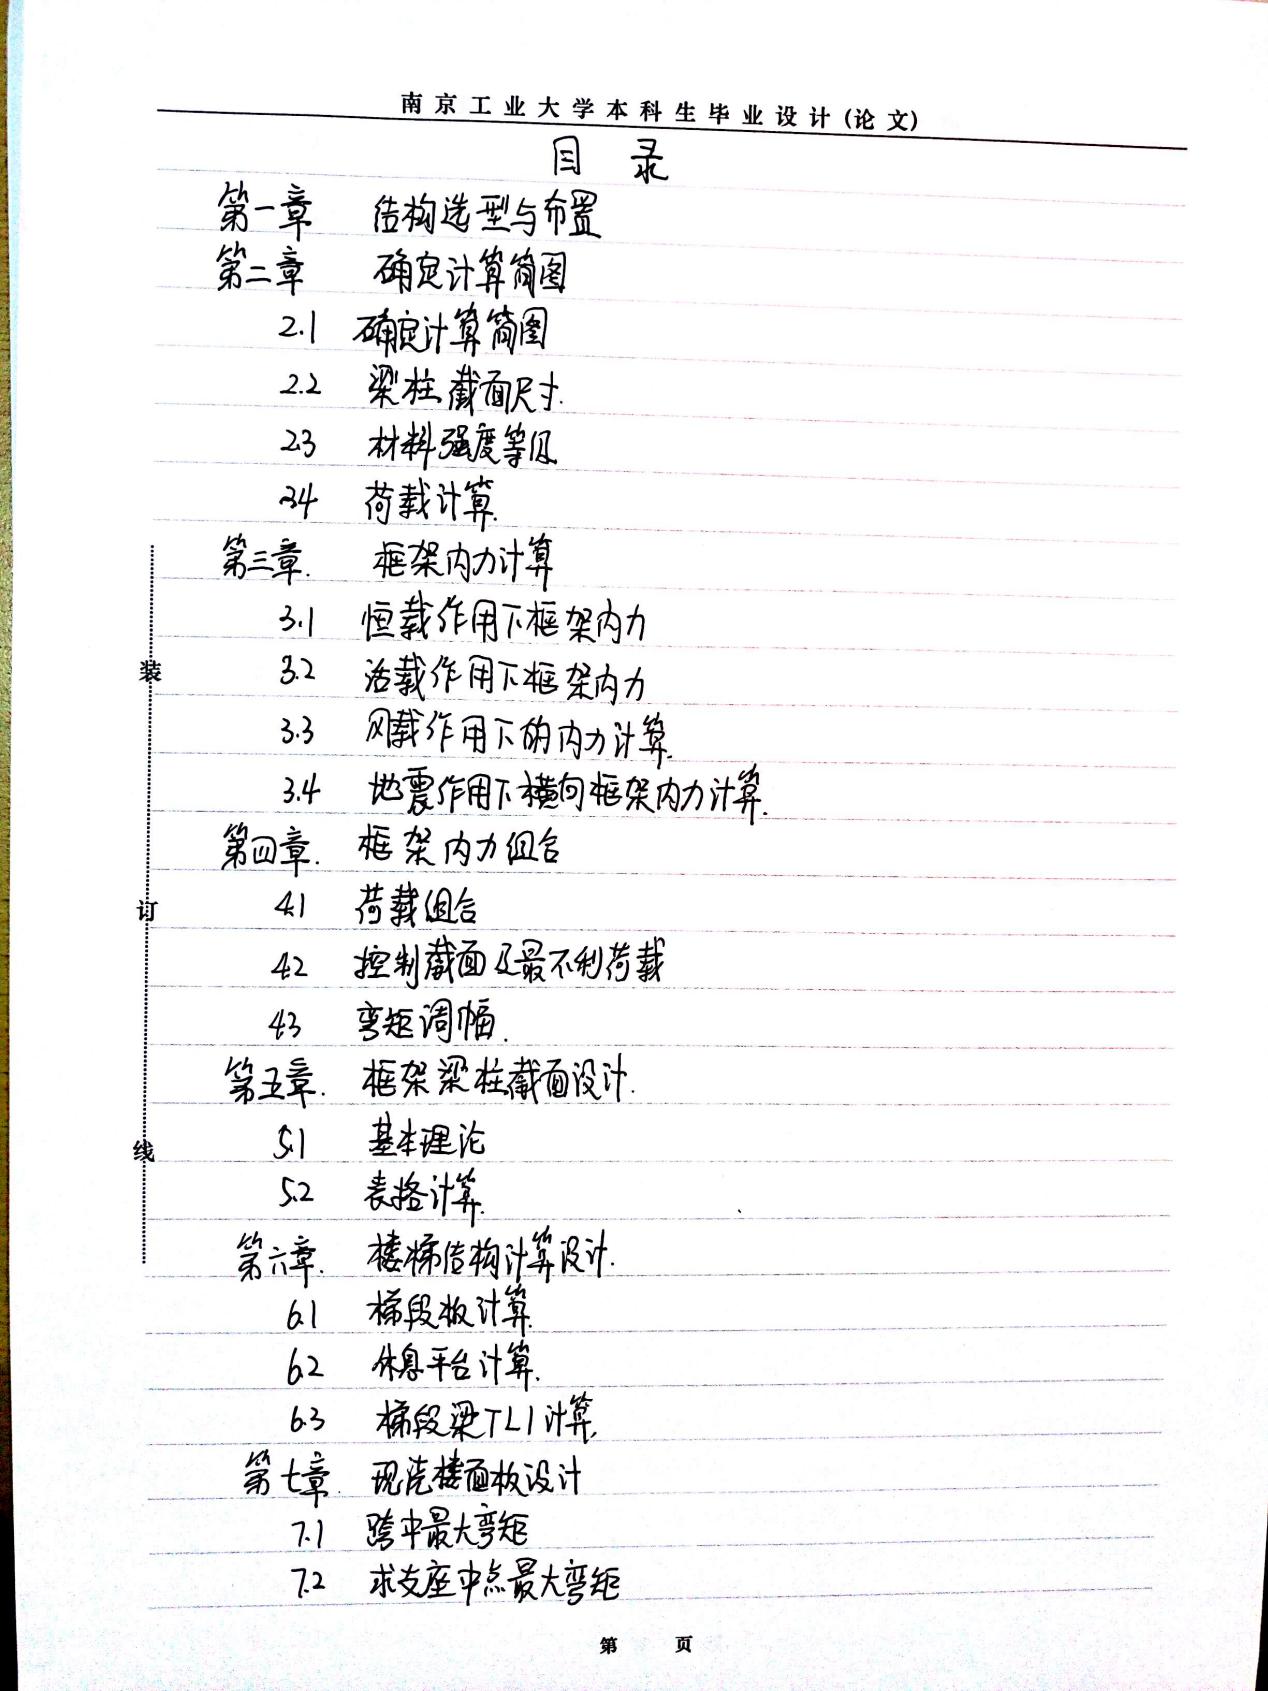 南京工业大学本科生毕业设计(论文)
目 录
第一章 结构选型与布置
第二章 确定计算简图
2.1 确定计算简图
2.2 梁柱截面尺寸.
2.3 材料强度等级
2.4 荷载计算.
第三章. 框架内力计算
3.1 恒载作用下框架内力
3.2 活载作用下框架内力
3.3 风载作用下的内力计算.
3.4 地震作用下横向框架内力计算.
第四章. 框架内力组合
4.1 荷载组合
4.2 控制截面及最不利荷载
4.3 弯矩调幅.
第五章. 框架梁柱截面设计.
5.1 基本理论
5.2 表格计算.
第六章. 楼梯结构计算设计.
6.1 梯段板计算.
6.2 休息平台计算.
6.3 梯段梁TL1计算.
第七章. 现浇楼面板设计
7.1 跨中最大弯矩
7.2 求支座中点最大弯矩
装
订
线
第 页